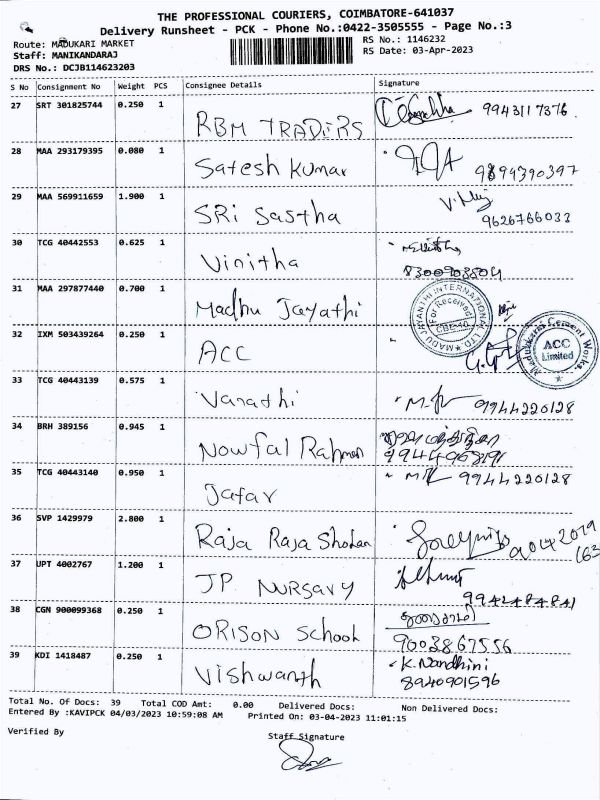 THE PROFESSIONAL COURIERS, COIMBATORE-641037
Delivery Runsheet - PCK - Phone No.:0422-3505555 - Page No.:3
Route: MADUKARI MARKET
RS No.: 1146232
Staff: MANIKANDARAJ
RS Date: 03-Apr-2023
DRS No.: DCJB114623203
S No Consignment No Weight PCS Consignee Details Signature
27 SRT 301825744 0.250 1 RBM TRADERS 9943117376
28 MAA 293179395 0.080 1 Satesh Kumar 9894390397
29 MAA 569911659 1.900 1 SRi Sastha 9626766033
30 TCG 40442553 0.625 1 Vinitha
31 MAA 297877440 0.700 1 Madhu Jayathi
MADU JAYANTHI INTERNATIONAL LTD
For Received
CBE-10
32 IXM 503439264 0.250 1 ACC
Madukkarai Cement Works.
ACC
Limited
33 TCG 40443139 0.575 1 Varathi 9944220128
34 BRH 389156 0.945 1 Nowfal Rahman
35 TCG 40443140 0.950 1 Jafar 9944220128
36 SVP 1429979 2.800 1 Raja Raja Sholan
37 UPT 4002767 1.200 1 JP NURSARY
38 CGN 900099368 0.250 1 ORISON School 9003867556
39 KDI 1418487 0.250 1 Vishwanth K. Nandhini
8940901596
Total No. Of Docs: 39 Total COD Amt: 0.00 Delivered Docs: Non Delivered Docs:
Entered By :KAVIPCK 04/03/2023 10:59:08 AM Printed On: 03-04-2023 11:01:15
Verified By
Staff Signature